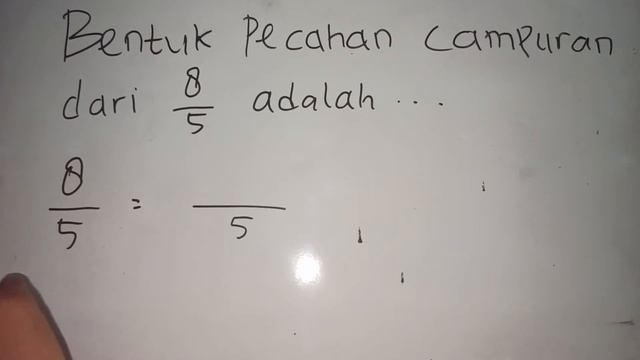 Bentuk Pecahan Campuran
dari 8/5 adalah ...
8/5 = /5